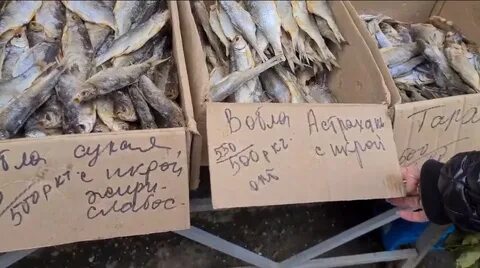 бла сухая
500р кг - с икрой
жирн.
слабос.
Вобла Астрахань
550
500р кг с икрой
опт
Тара
500